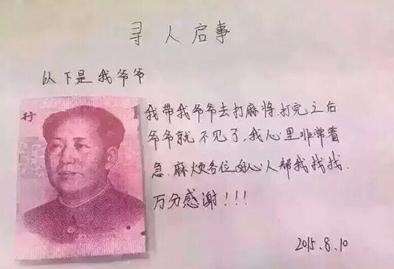 寻人启事
以下是我爷爷
我带我爷爷去打麻将.打完之后
爷爷就不见了.我心里非常着
急.麻烦各位好心人帮我找找.
万分感谢!!!
行
2015.8.10